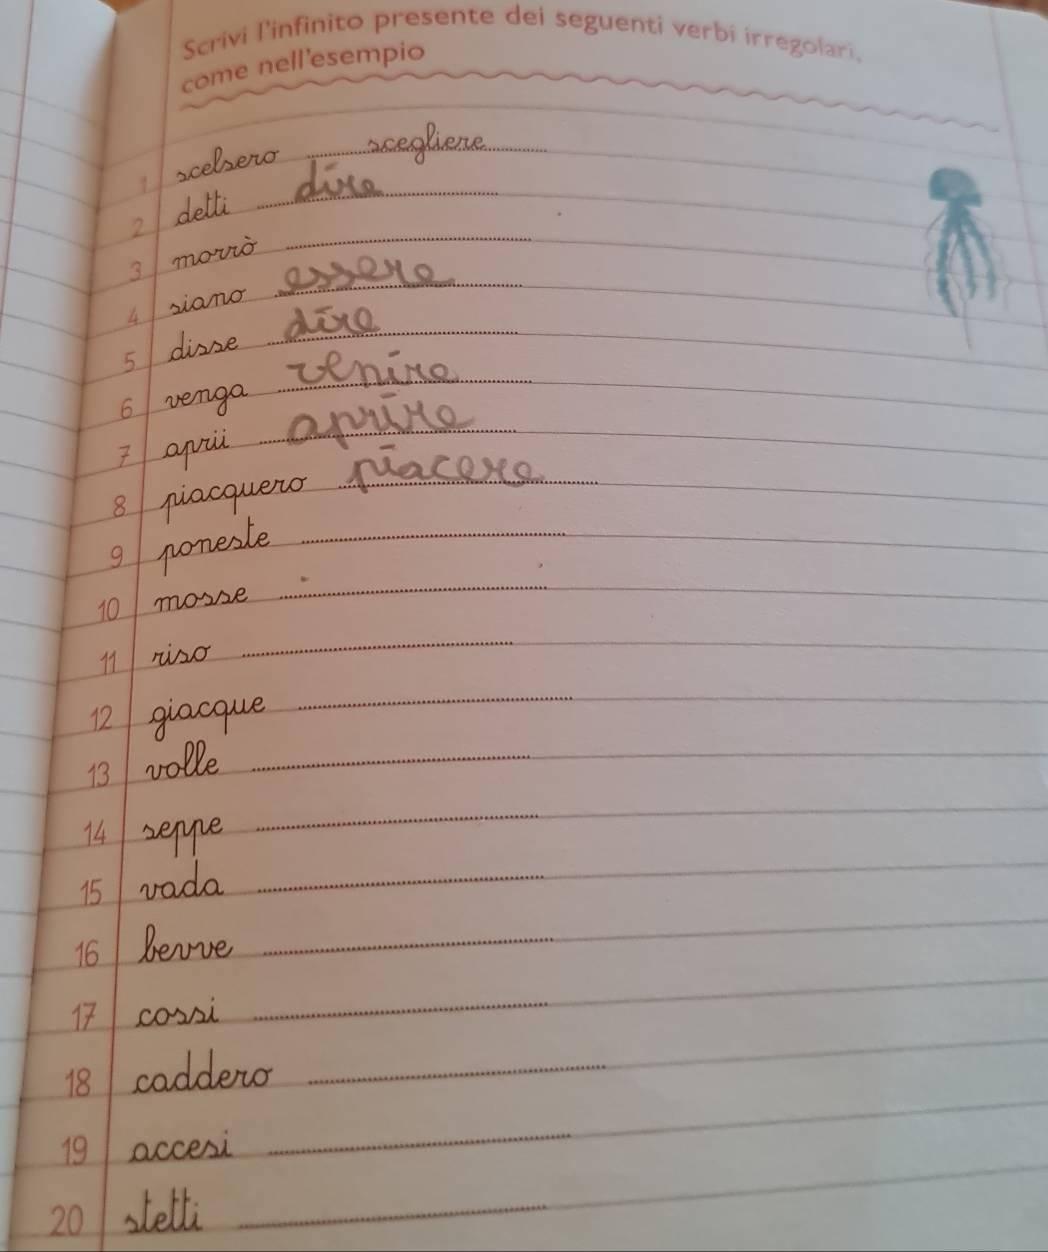 Scrivi l'infinito presente dei seguenti verbi irregolari,
come nell'esempio
1 scelsero scegliere
2 detti dire
3 morrò
4 siano essere
5 disse dire
6 venga venire
7 aprii aprire
8 piacquero piacere
9 poneste
10 mosse
11 riso
12 giacque
13 volle
14 seppe
15 vada
16 bevve
17 corsi
18 caddero
19 accesi
20 stetti